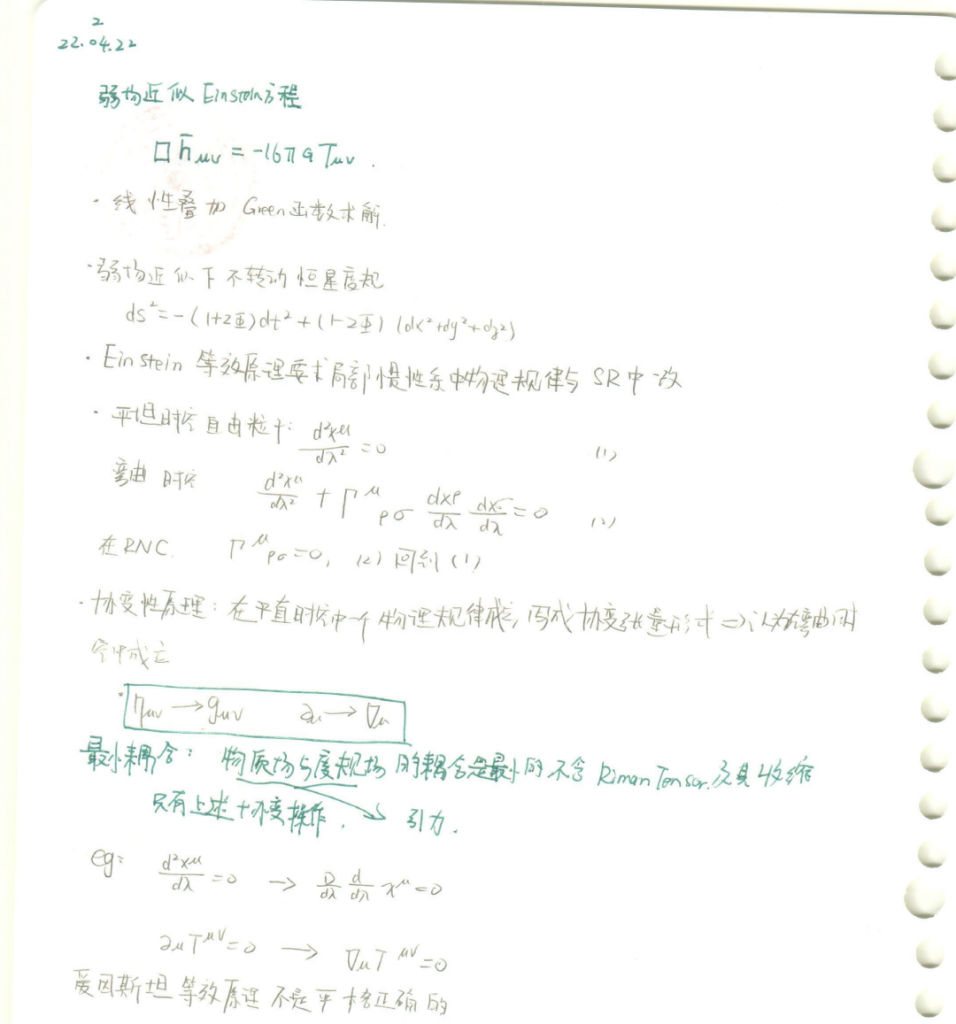 2
22.04.22
弱场近似 Einstein方程
□ h̄μν = -16πG Tμν .
· 线性叠加 Green函数求解.
· 弱场近似下不转动恒星度规
ds² = -(1+2Φ)dt² + (1-2Φ)(dx²+dy²+dz²)
· Einstein 等效原理要求局部惯性系中物理规律与 SR中一致
· 平坦时空自由粒子: d²xμ/dλ² = 0 (1)
弯曲时空 d²xμ/dλ² + Γμρσ dxρ/dλ dxσ/dλ = 0 (2)
在RNC. Γμρσ = 0, (2) 回到 (1)
· 协变性原理: 在平直时空中一个物理规律成立, 写成协变张量形式 ⇒ 认为在弯曲时
空中成立
· ημν → gμν ∂μ → ∇μ
最小耦合: 物质场与度规场的耦合是最小的 不含 Riman Tensor. 及其收缩
只有上述协变操作. → 引力.
eg: d²xμ/dλ = 0 → D/dλ d/dλ xμ = 0
∂μTμν = 0 → ∇μTμν = 0
爱因斯坦等效原理不是严格正确的